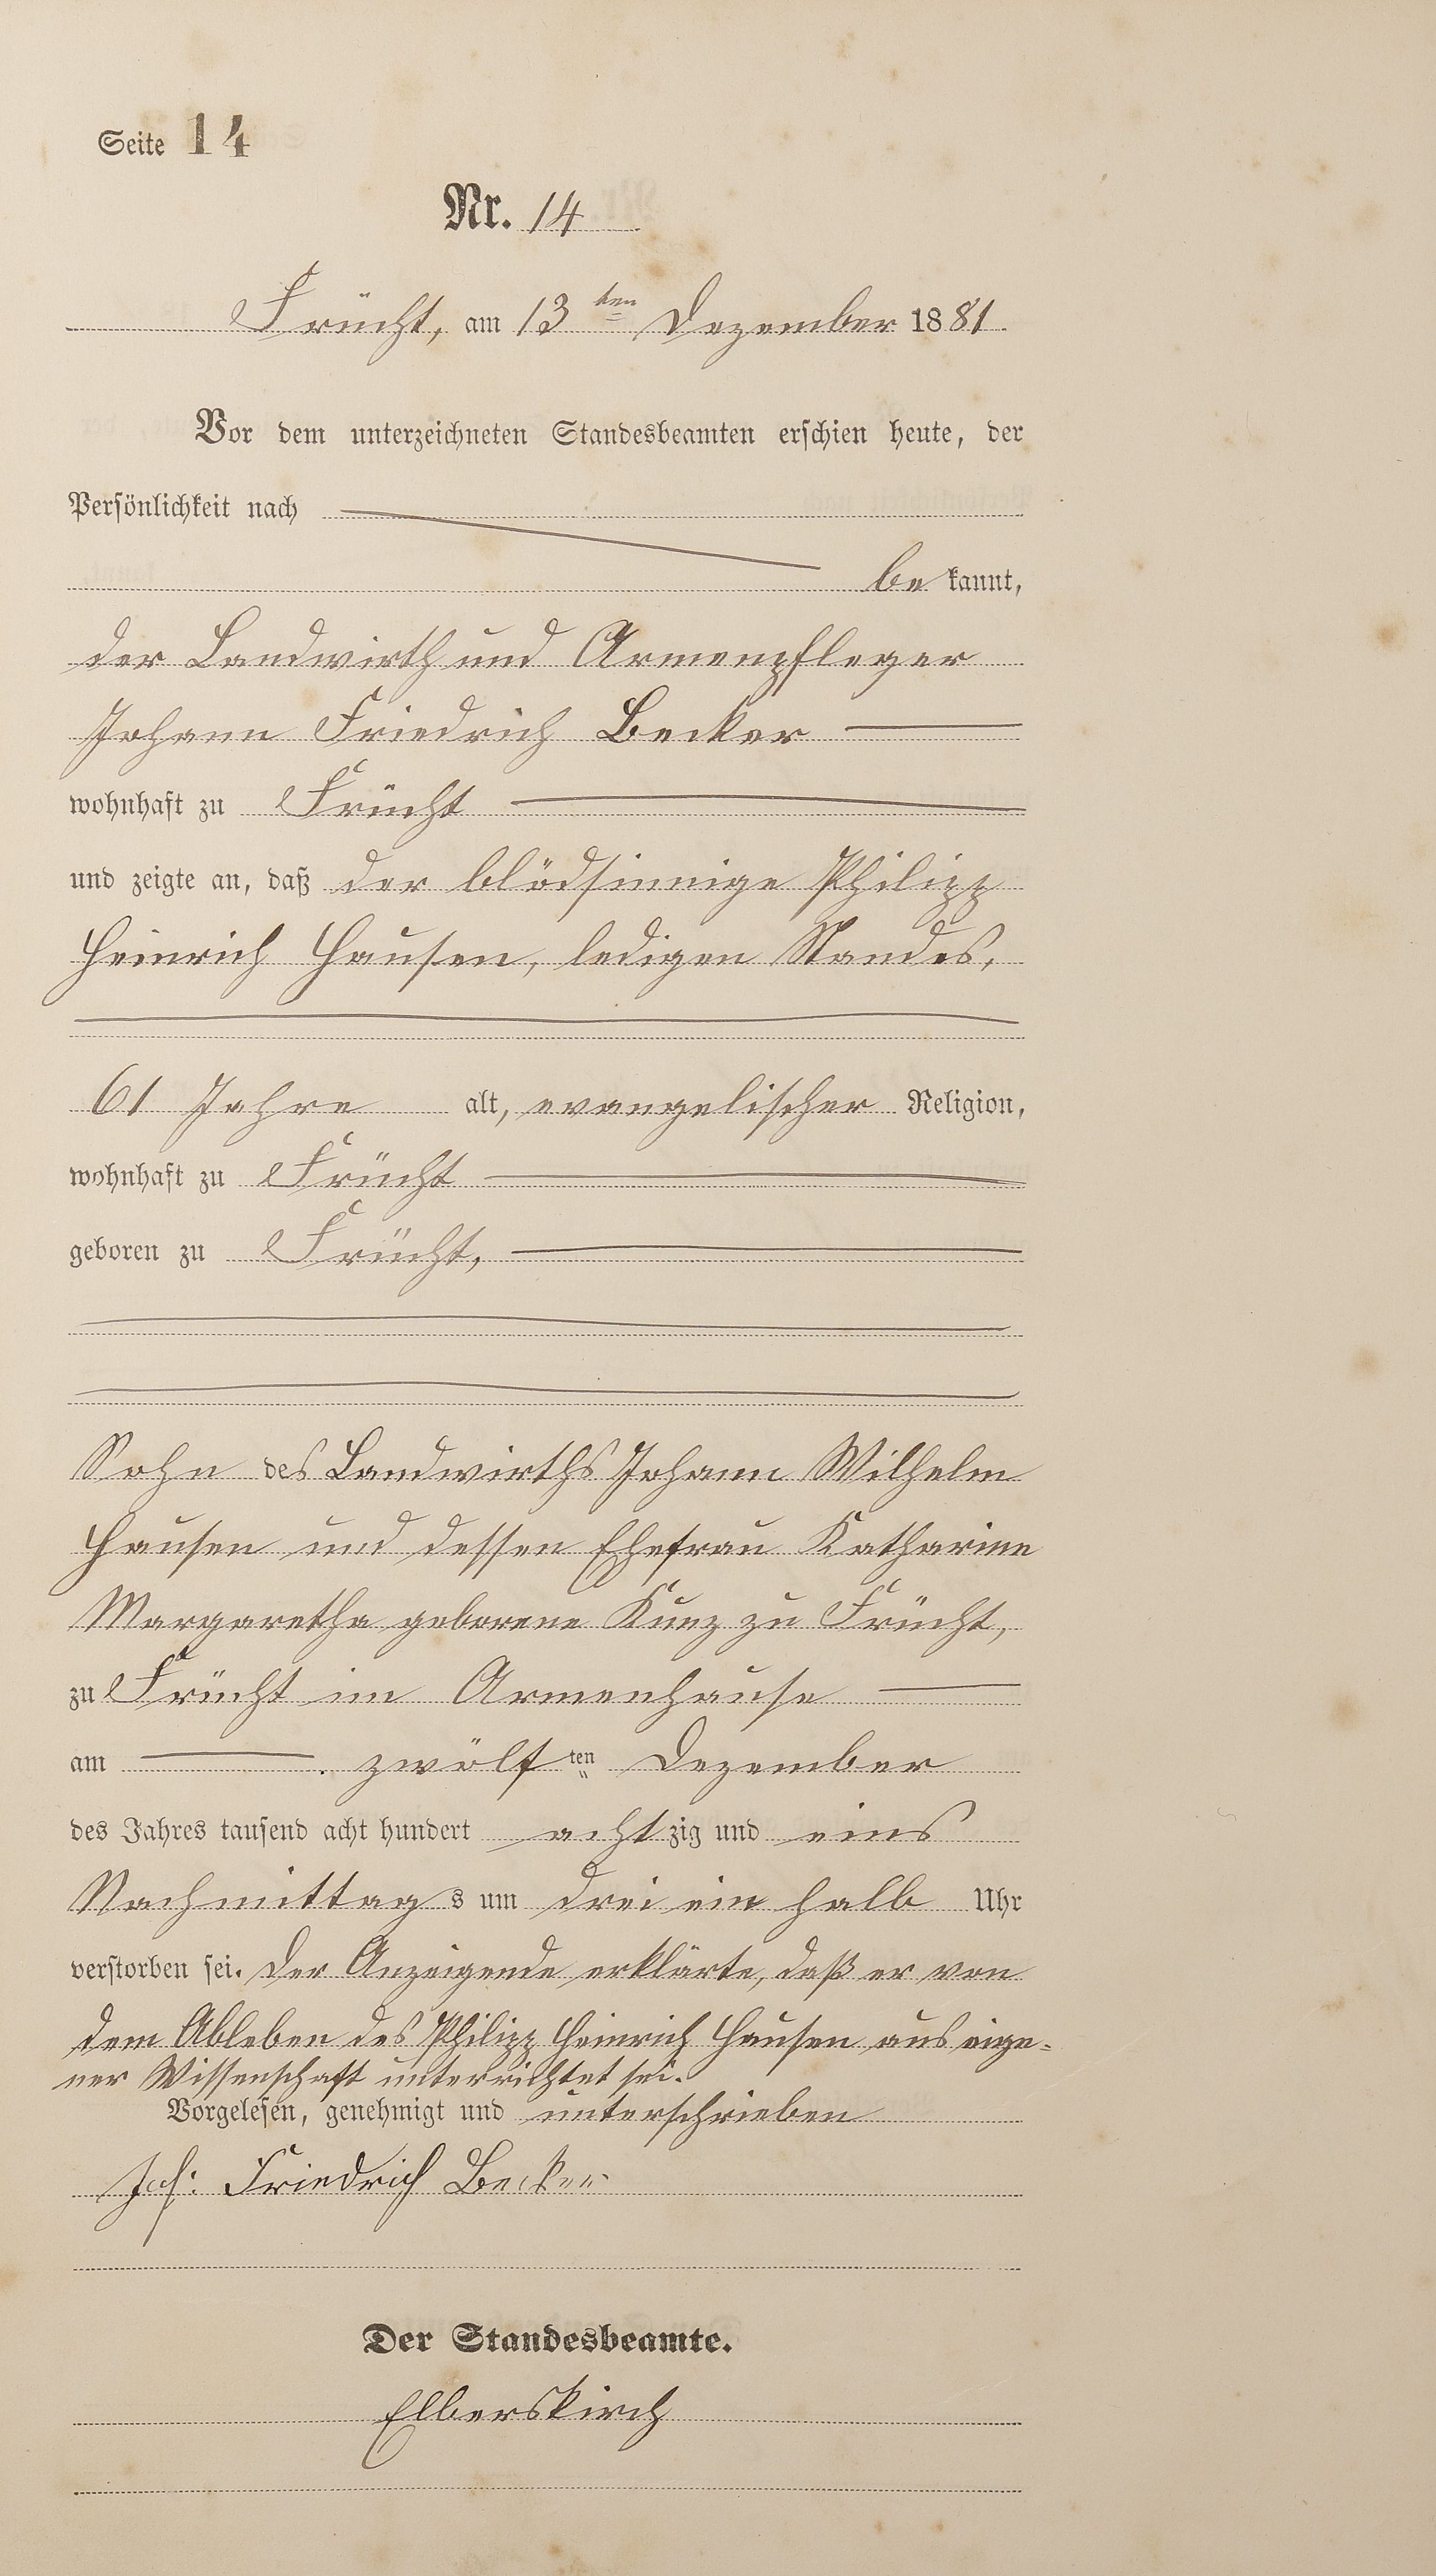 Seite 14
Nr. 14
Frücht, am 13ten Dezember 1881.
Vor dem unterzeichneten Standesbeamten erschien heute, der
Persönlichkeit nach
bekannt,
der Landwirth und Armenpfleger
Johann Friedrich Becker
wohnhaft zu Frücht
und zeigte an, daß der blödsinnige Philipp
Heinrich Hausen, ledigen Standes,
61 Jahre alt, evangelischer Religion,
wohnhaft zu Frücht
geboren zu Frücht,
Sohn des Landwirths Johann Wilhelm
Hausen und dessen Ehefrau Katharine
Margaretha geborene Kunz zu Frücht,
zu Frücht im Armenhause
am zwölften Dezember
des Jahres tausend acht hundert achtzig und eins
Nachmittags um drei ein halb Uhr
verstorben sei. Der Anzeigende erklärte, daß er von
dem Ableben des Philipp Heinrich Hausen aus eige-
ner Wissenschaft unterrichtet sei.
Vorgelesen, genehmigt und unterschrieben
Joh: Friedrich Becker
Der Standesbeamte.
Elberskirch